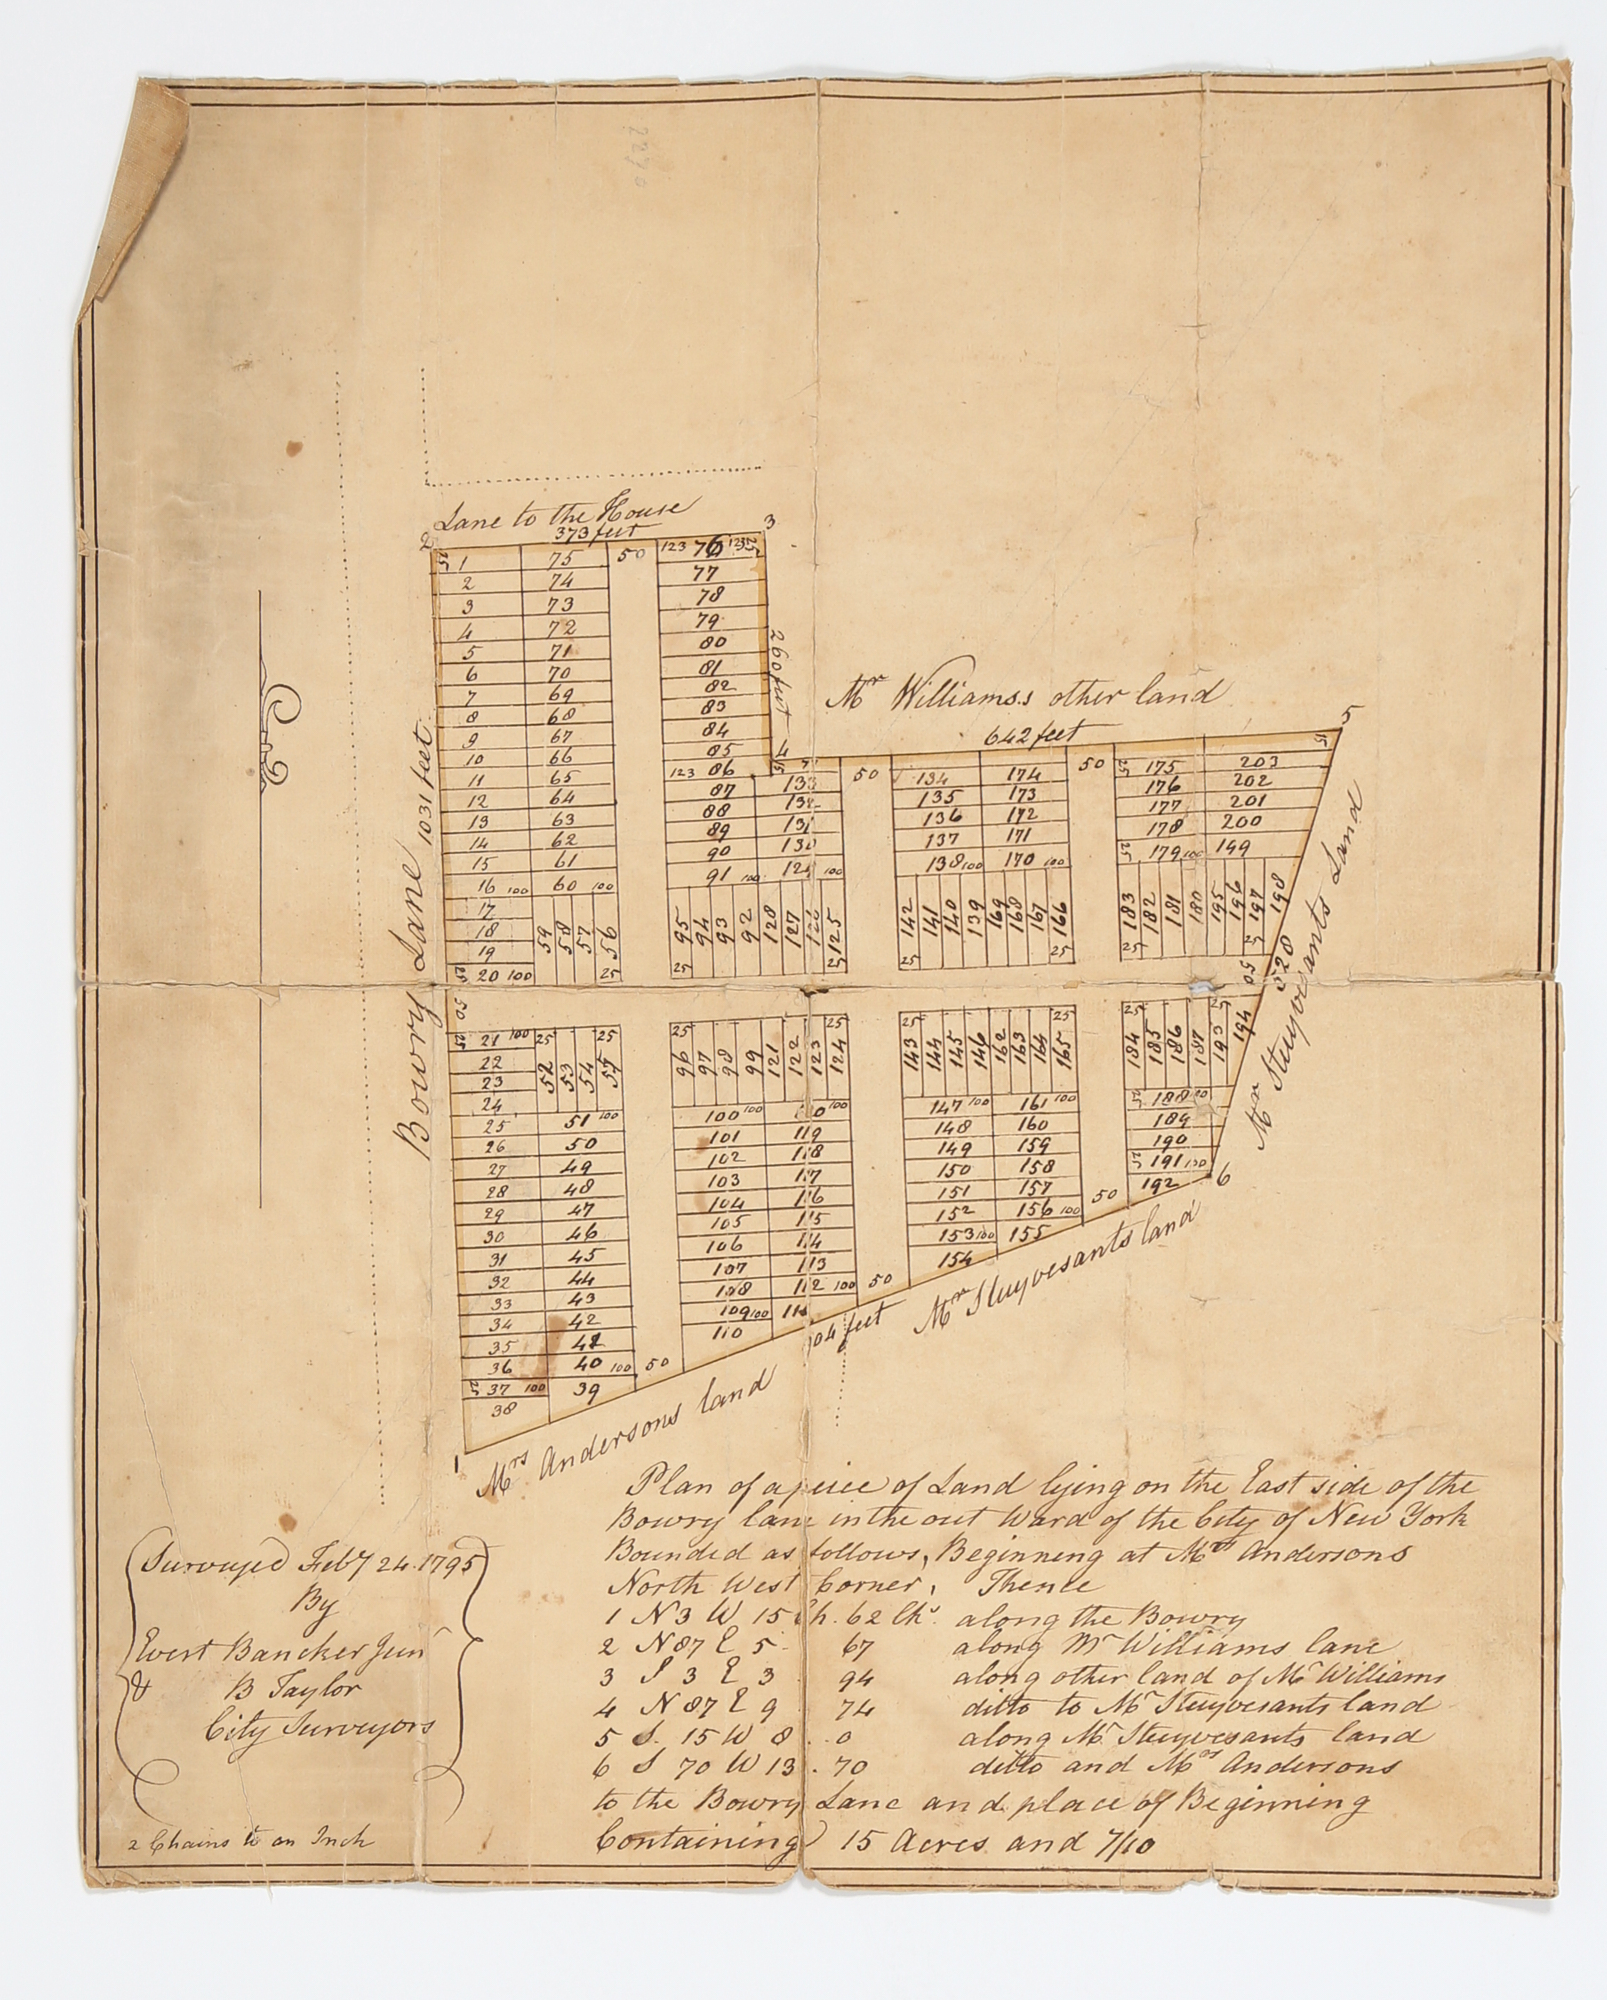 Lane to the House
373 feet
2
3
25 1 75 50 123 76 123 25
2 74 77
3 73 78
4 72 79
5 71 80
6 70 81
7 69 82
8 68 83
9 67 84
10 66 85
11 65 123 86
12 64 87
13 63 88
14 62 89
15 61 90
16 100 60 100 91 100
17
18
19
25 20 100
59 58 57 56
25
260 feet
4
15
Mr Williams.s other land
642 feet
5
15
133 50 134 174 50 25 175 203
132 135 173 176 202
131 136 172 177 201
130 137 171 178 200
129 100 138 100 170 100 25 179 100 199
95 94 93 92 128 127 126 125
25 25
142 141 140 139 169 168 167 166
25 25
183 182 181 180 195 196 197 198
25 25
Bowry Lane 1031 feet
50
50
528
Mr Stuyvesants Land
25 21 100
22
23
24
25
52 53 54 55
25
25 25
96 97 98 99 121 122 123 124
25 25
143 144 145 146 162 163 164 165
25 25
184 185 186 187 193 194
25 51 100 100 100 120 100 147 100 161 100 25 188
26 50 101 119 148 160 189
27 49 102 118 149 159 190
28 48 103 117 150 158 25 191 100
29 47 104 116 151 157 50 192 6
30 46 105 115 152 156 100
31 45 106 114 153 100 155
32 44 107 113 154
33 43 108 112 100 50
34 42 109 100 111
35 41 110
36 40 100 50
25 37 100 39
38
1
Mrs Andersons land
04 feet
Mr Stuyvesants land
Plan of a piece of Land lying on the East side of the
Bowry lane in the out Ward of the City of New York
Bounded as follows, Beginning at Mrs Andersons
North West Corner, Thence
1 N 3 W 15 Ch. 62 lks. along the Bowry
2 N 87 E 5 67 along Mr Williams lane
3 S 3 E 3 94 along other land of Mr Williams
4 N 87 E 9 74 ditto to Mr Stuyvesants land
5 S. 15 W 8 . 0 along Mr Stuyvesants land
6 S 70 W 13 . 70 ditto and Mrs Andersons
to the Bowry Lane and place of Beginning
Containing 15 Acres and 7/10
Surveyed Feby 24. 1795
By
Evert Bancker Junr
& B Taylor
City Surveyors
2 Chains to an Inch